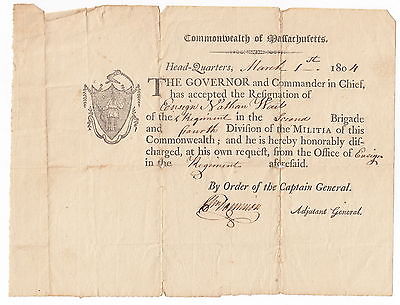 Commonwealth of Massachusetts.
Head-Quarters, March 1st 1804
THE GOVERNOR and Commander in Chief,
has accepted the Resignation of
Ensign Nathan Wait
of the Regiment in the Second Brigade
and fourth Division of the MILITIA of this
Commonwealth; and he is hereby honorably dis-
charged, at his own request, from the Office of Ensign
in the Regiment aforesaid.
By Order of the Captain General.
Adjutant General.